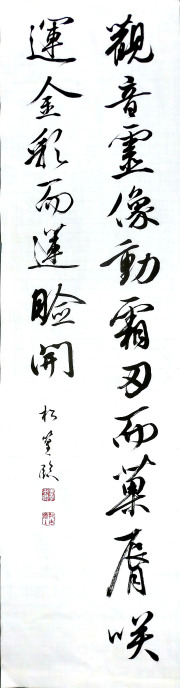 觀音靈像動霜刃而菓脣咲
運金彩而蓮瞼開
松篁臨